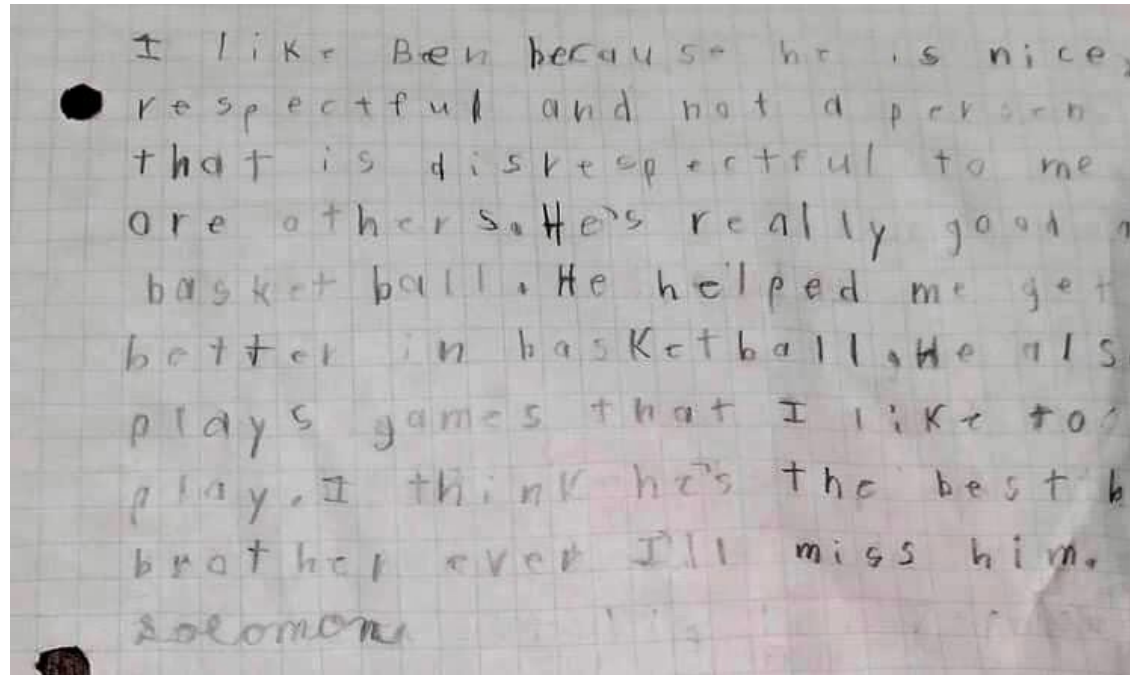 I like Ben because he is nice,
respectful and not a person
that is disrespectful to me
are others. He's really good
basket ball. He helped me get
better in basketball. He als
plays games that I like to
play. I think he's the best b
brother ever I'll miss him.
solomon